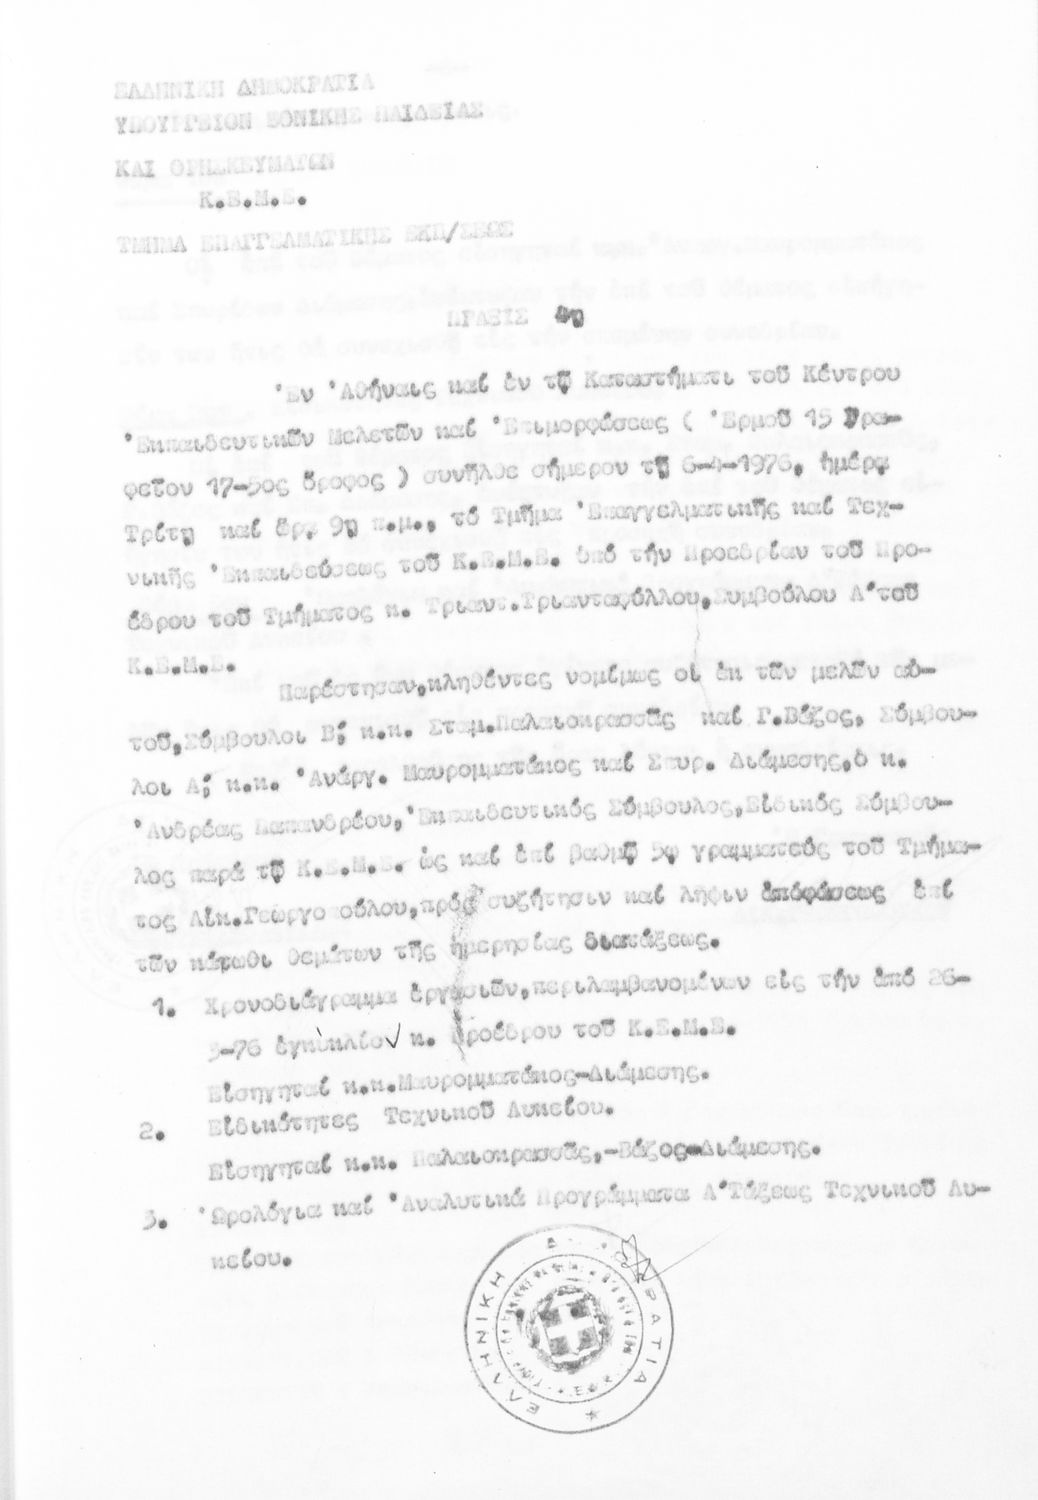 ΕΛΛΗΝΙΚΗ ΔΗΜΟΚΡΑΤΙΑ
ΥΠΟΥΡΓΕΙΟΝ ΕΘΝΙΚΗΣ ΠΑΙΔΕΙΑΣ
ΚΑΙ ΘΡΗΣΚΕΥΜΑΤΩΝ
Κ.Ε.Μ.Ε.
ΤΜΗΜΑ ΕΠΑΓΓΕΛΜΑΤΙΚΗΣ ΕΚΠ/ΣΕΩΣ
ΠΡΑΞΙΣ 4η
Ἐν Ἀθήναις καί ἐν τῷ Καταστήματι τοῦ Κέντρου
Ἐκπαιδευτικῶν Μελετῶν καί Ἐπιμορφώσεως ( Ἑρμοῦ 15 Γρα-
φεῖον 17-5ος ὄροφος ) συνῆλθε σήμερον τῇ 6-4-1976, ἡμέρᾳ
Τρίτῃ καί ὥρᾳ 9η π.μ., τό Τμῆμα Ἐπαγγελματικῆς καί Τεχ-
νικῆς Ἐκπαιδεύσεως τοῦ Κ.Ε.Μ.Ε. ὑπό τήν Προεδρίαν τοῦ Προ-
έδρου τοῦ Τμήματος κ. Τριαντ.Τριανταφύλλου,Συμβούλου Α΄τοῦ
Κ.Ε.Μ.Ε.
Παρέστησαν,κληθέντες νομίμως οἱ ἐκ τῶν μελῶν αὐ-
τοῦ,Σύμβουλοι Β΄, κ.κ. Σταμ.Παλαιοκρασσᾶς καί Γ.Βάζος, Σύμβου-
λοι Α΄, κ.κ. Ἀνάργ. Μαυρομματάκος καί Σπυρ. Διάμεσης,ὁ κ.
Ἀνδρέας Παπανδρέου,Ἐκπαιδευτικός Σύμβουλος,Εἰδικός Σύμβου-
λος παρά τῷ Κ.Ε.Μ.Ε. ὡς καί ἐπί βαθμῷ 5ῳ γραμματεύς τοῦ Τμήμα-
τος Αἰκ.Γεωργοπούλου,πρός συζήτησιν καί λῆψιν ἀποφάσεως ἐπί
τῶν κάτωθι θεμάτων τῆς ἡμερησίας διατάξεως.
1. Χρονοδιάγραμμα ἐργασιῶν,περιλαμβανομένων εἰς τήν ἀπό 26-
3-76 ἐγκύκλιον κ. Προέδρου τοῦ Κ.Ε.Μ.Ε.
Εἰσηγηταί κ.κ.Μαυρομματάκος-Διάμεσης.
2. Εἰδικότητες Τεχνικοῦ Λυκείου.
Εἰσηγηταί κ.κ. Παλαιοκρασσᾶς,-Βάζος-Διάμεσης.
3. Ὡρολόγια καί Ἀναλυτικά Προγράμματα Α΄Τάξεως Τεχνικοῦ Λυ-
κείου.
ΕΛΛΗΝΙΚΗ